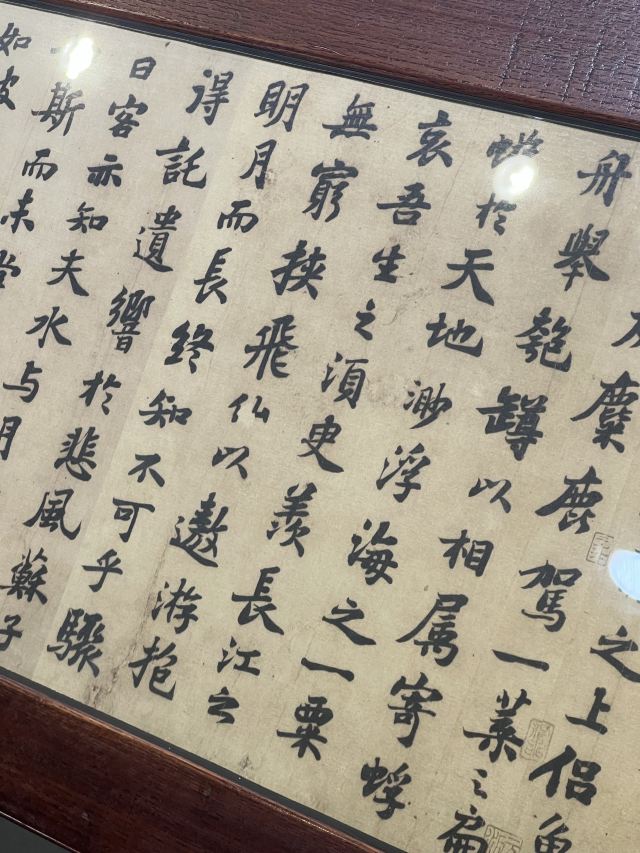 之上侶魚
友麋鹿駕一葉之扁
舟舉匏罇以相属寄蜉
蝣於天地渺浮海之一粟
哀吾生之須臾羨長江之
無窮挾飛仙以遨游抱
明月而長終知不可乎驟
得託遺響於悲風蘇子
曰客亦知夫水与月
斯而未嘗
如彼